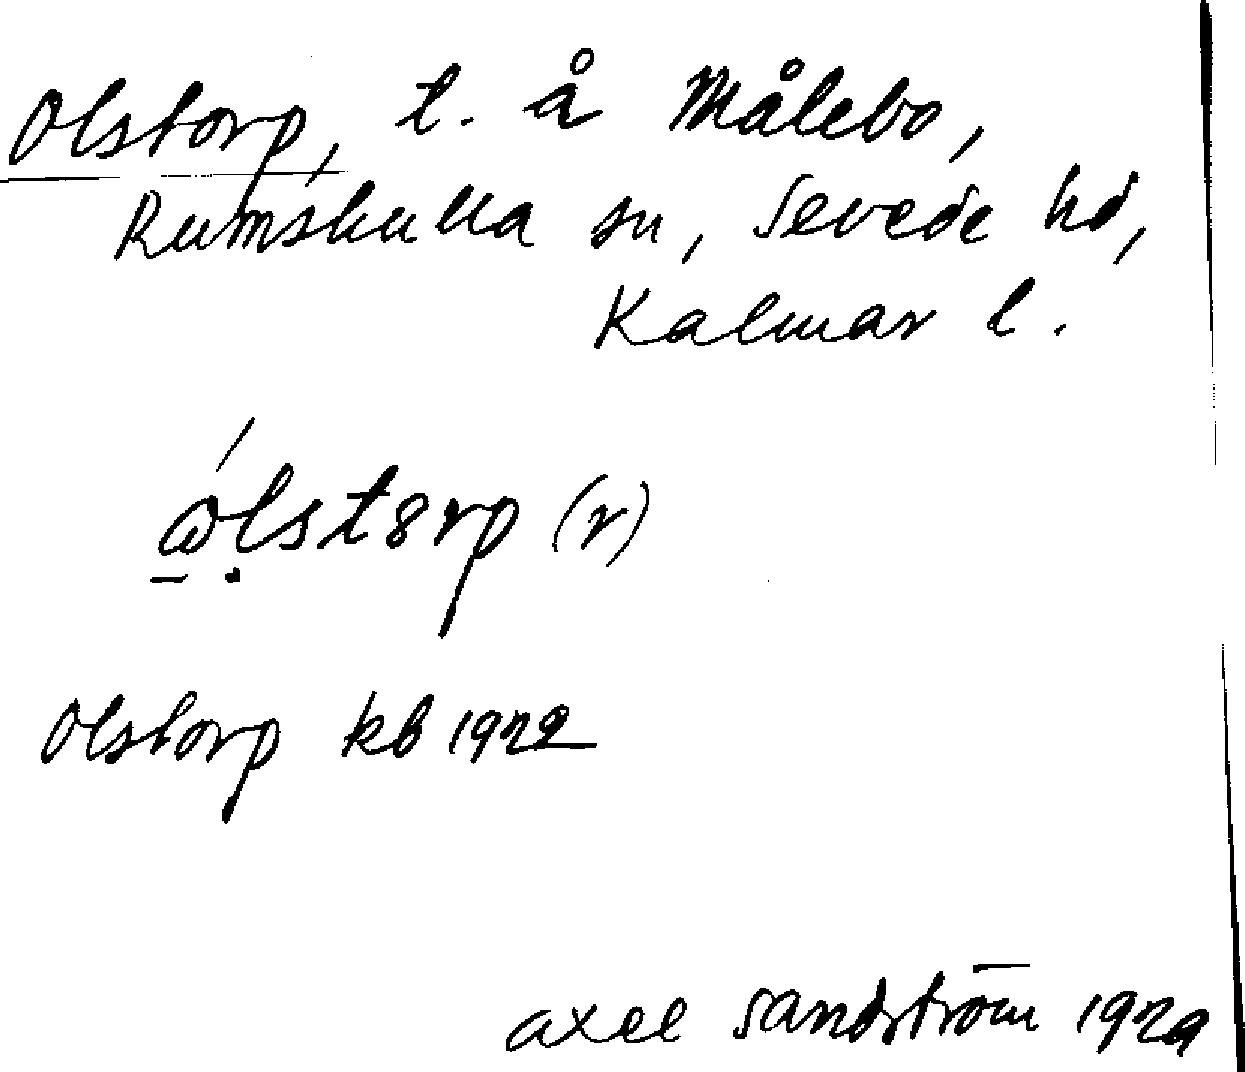 Olstorp, t. å Målebo,
Rumskulla sn, Sevede hd,
Kalmar l.
ólstorp (r)
Olstorp kb 1922
Axel Sandström 1929